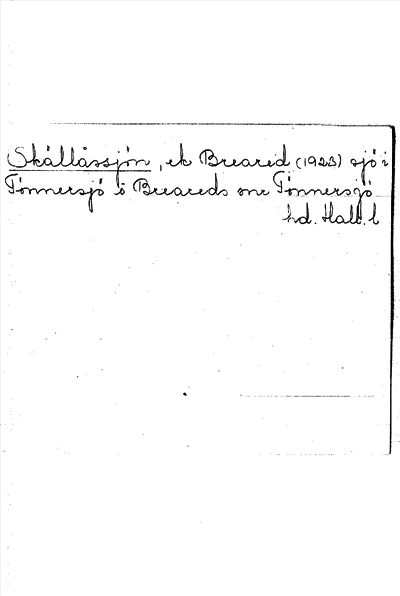 Skållåssjön, ek Breared (1923) sjö i
Tönnersjö o Breareds snr Tönnersjö
hd. Hall. l